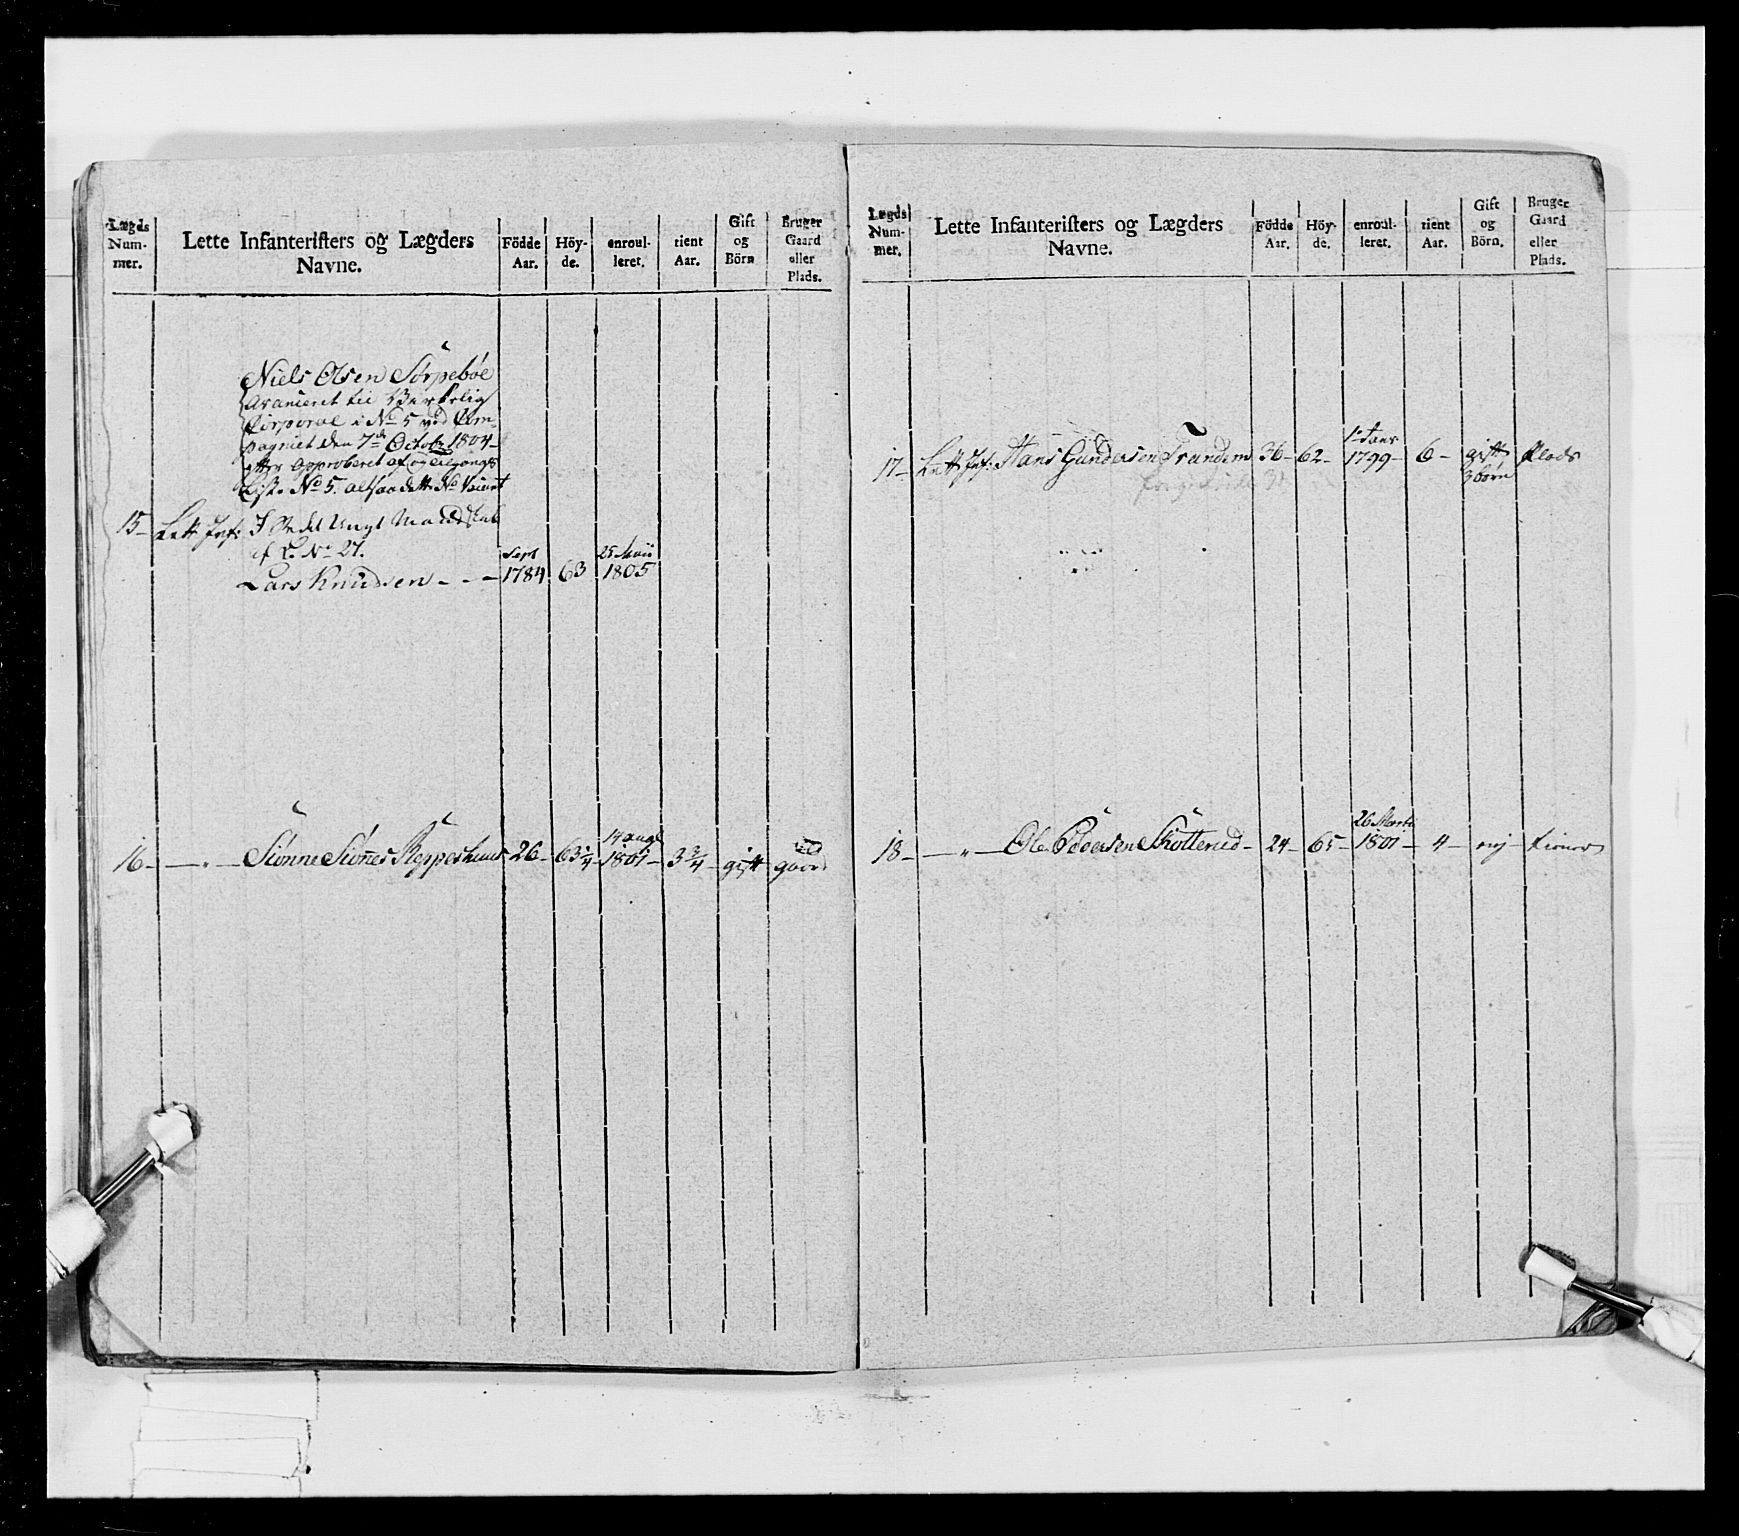 Lægds Num- mer.
Lette Infanterister og Lægders Navne.
Födde Aar.
Höy- de.
enroul- leret.
tient Aar.
Gift og Börn
Bruger Gaard eller Plads.
Niels Olsen Sörpebøe
avanceret til Virkelig
Corporal i No 5 ved Com-
pagniet den 7de Octobr 1804
efter approberet af og tilgangs
Liste No 5. altsaa dette No Vacant
15 Lett Inf: I Stedet Ungt Mandskab
af L. No 27.
Lars Knudsen - - - Sept 1784 63 25 Maii 1805
16 - " - Siønne Siønnes 26 - 63 1/4 14 Aug 1801 - 3 3/4 - gift gaard
Lægds Num- mer.
Lette Infanterister og Lægders Navne.
Födde Aar.
Höy- de.
enroul- leret.
tient Aar.
Gift og Börn.
Bruger Gaard eller Plads.
17 - Lett Inf: Hans Gundersen Trandem 36 - 62 - 1 Janr 1799 6 - gift 3 børn Plads
18 - " - Ole Pedersen Skotterud - 24 - 65 - 26 Marti 1801 - 4 - nej - tiener